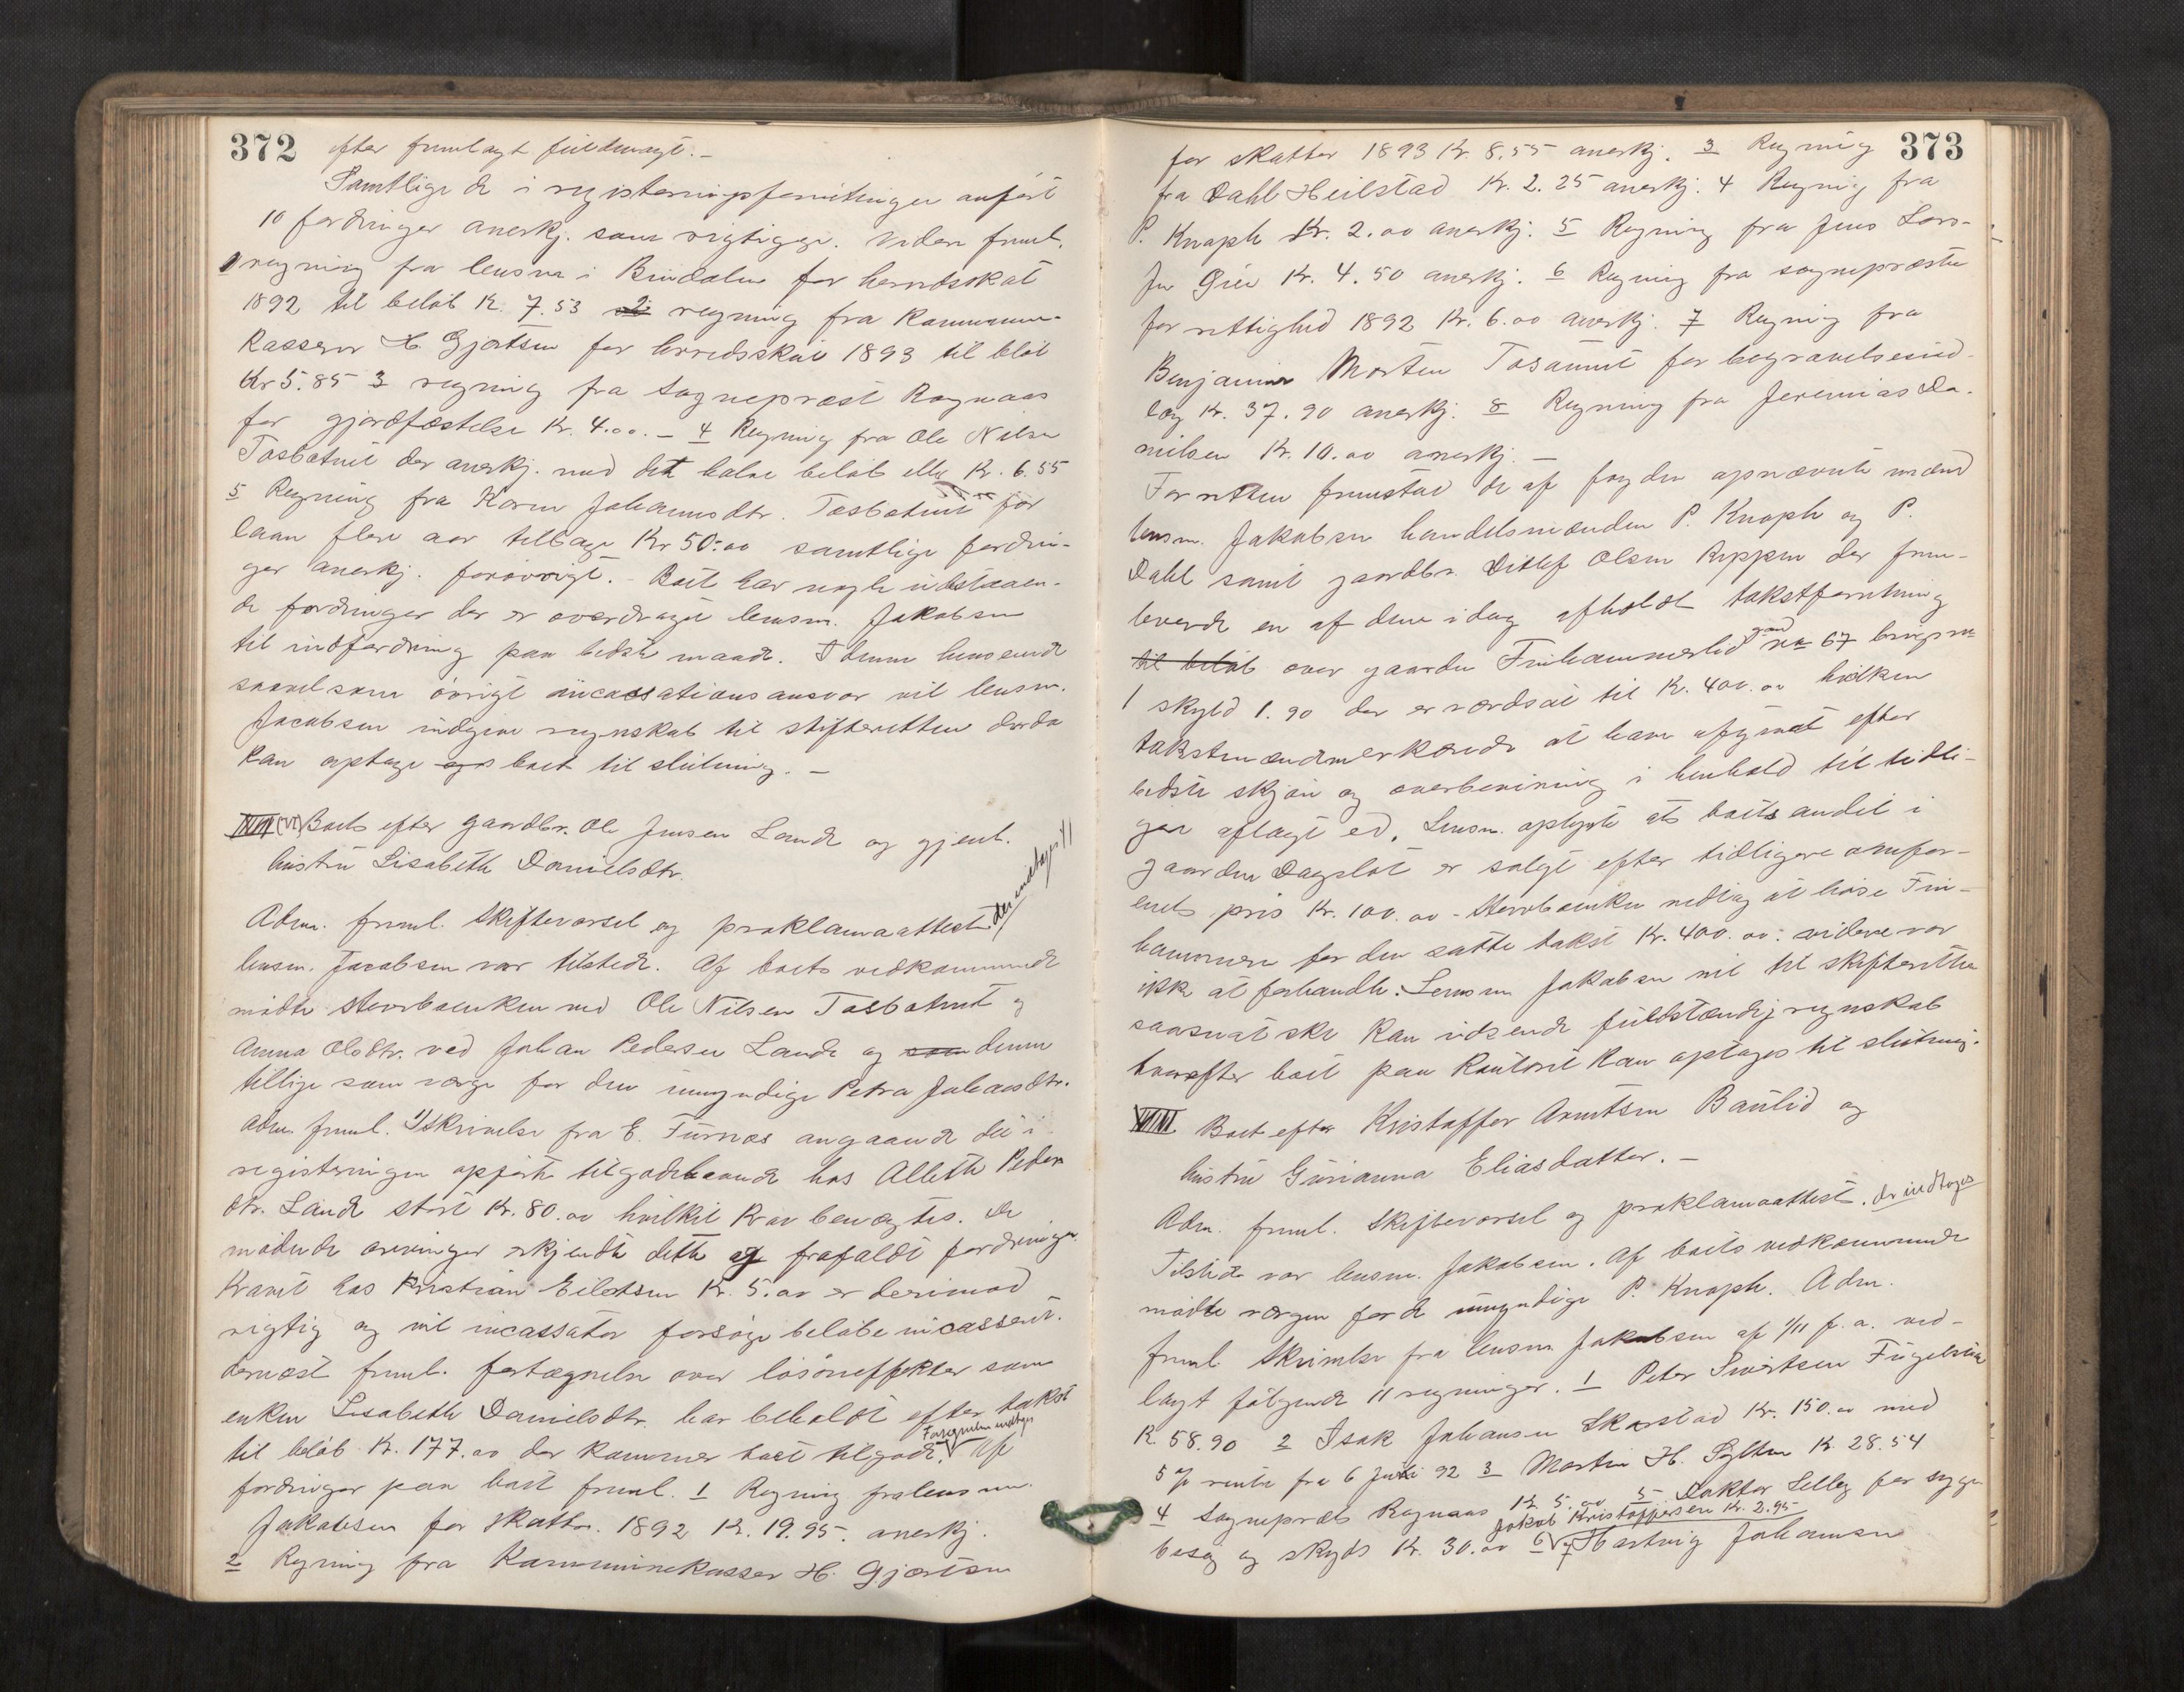 372
efter fremlagt fuldmagt.-
Samtlige de i registeringsforretningen anført
10 fordringer anerkj. som rigtigge. Videre freml.
1 regning fra lensm i Bindalen for herredsskat
1892 til beløb Kr. 7.53 2 regning fra Kommune-
kasserer H. Gjertsen for herredsskat 1893 til bløb
Kr 5.85 3 regning fra Sogneprest Rognaas
for gjordfæstelse Kr. 4.00. - 4 Regning fra Ole Nilsen
Tosbotnet der anerkj. med det halve beløb eller Kr. 6.55
5 Regning fra Karen Johannesdtr. Tosbotnet for
laan flere aar tilbage Kr 50.00 samtlige fordrin-
ger anerkj. forøvrigt. - Boet har nogle udestaaen-
de fordringer der er overdraget lensm. Jakobsen
til indfordring paa bedste maade. I denne henseende
saavelsom øvrigt incassationsansvar vil lensm.
Jacobsen indgive regnskab til skifteretten der da
kan optage boet til slutning. -
(VI) Boets efter gaardbr. Ole Jensen Lande og gjenl.
hustru Lisabeth Danielsdtr.
Adm. freml. Skiftevarsel og proklamaattest der indtages //
lensm. Jacobsen var tilstede. Af boets vedkommende
mødte Stervboenken ved Ole Nilsen Tosbotnet og
Anna Olsdtr. ved Johan Pedersen Lande og som denne
tillige som værge for den umyndige Petra Johansdtr.
Adm. freml. Skrivelse fra E. Furnæs angaaende det i
registeringen opførte tilgodehavende hos Alleth Peders
dtr. Lande stort Kr. 80.00 hvilket krav benægtes. De
mødende arvinger erkjendte dette og frafaldt fordringen.
Kravet hos Kristian Eilertsen Kr. 5.00 er derimod
rigtig og vil incassator forsøge beløbe incasseret.
dernæst freml. fortegnelse over løsøreffekter som
enken Lisabeth Danielsdtr. har beholdt efter takst
til beløb Kr. 177.00 der kommer boet tilgode. Fortegnelsen indtages Af
fordringer paa boet freml. 1 Regning fra lensm.
Jakobsen for skatter. 1892 Kr. 19.95. anerkj.
2 Regning fra Kommunekasser H. Gjertsen
373
for skatter 1893 Kr. 8.55 anerkj. 3 Regning
fra Dahl Heilstad Kr. 2.25 anerkj. 4 Regning fra
P. Knoph Kr. 2.00 anerkj. 5 Regning fra Jens Lars-
Kr. 4.50 anerkj. 6 Regning fra sognepresten
for rettighed 1892 Kr. 6.00 anerkj. 7 Regning fra
Benjamin Morten Tosaunet for begravelsesud-
læg Kr. 37.90 anerkj. 8 Regning fra Jeremias Da-
nielsen Kr. 10.00 anerkj. -
For retten fremstod de af fogden opnævnte mænd
lensm. Jakobsen handelsmænden P. Knoph og P.
Dahl samt gaardbr. Ditlef Olsen Reppen der frem-
leverede en af dem idag afholdt takstforretning
til beløb over gaarden Finhammerlid gaard no 67 brugsno
1 skyld 1.90 der er værdsat til Kr. 400.00 hvilken
takstmændmerkende at have afgivet efter
bedste skjøn og overbevisning i henhold til tidli-
gere aflagt ed. Lensm. oplyste at boets andel i
gaarden Dagslot er solgt efter tidligere omfor-
enets pris Kr. 100.00 - Stervboenken vedtog at løse Fin-
hammeren for den satte takst Kr. 400.00: videre var
ikke at forhandle. Lensm. Jakobsen vil til skifteretten
saasnart ske kan indsende fuldstændig regnskab
hvorefter boet paa kontoret kan optages til slutning.
VIII Boet efter Kristoffer Arntsen Bautlid og
hustru Gurianna Eliasdatter. -
Adm. freml. Skiftevarsel og proklamaattest. der indtages
Tilstede var lensm. Jakobsen. Af boets vedkommende
mødte værgen for de umyndige P. Knoph. Adm.
freml Skrivelse fra lensm Jakobsen af 1/11 f.a. ved-
lagt følgende 11 regninger. 1 Peter Sivertsen
K. 58.90 2 Isak Johansen Skarstad Kr. 150.00 med
5 % rente fra 6 Juli 92 3 Martin H. Sylten Kr. 28.54
4 Sogneprest Rognaas Kr. 5.00 5 Doktor Selley for syge
besøg og skyds Kr. 30.00 6 Jakob Kristoffersen Kr. 2.95 7 Hartvig Johansen